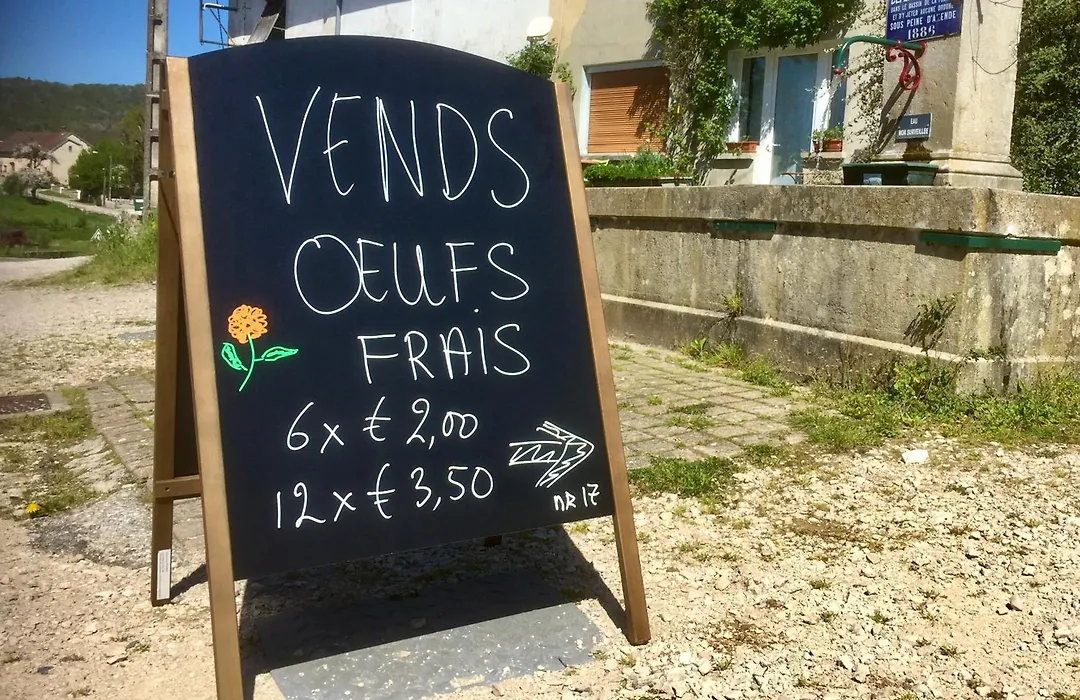 VENDS
ŒUFS
FRAIS
6 x € 2,00
12 x € 3,50
nR 17
DANS LE BASSIN DE LA
ET D'Y JETER AUCUNE
SOUS PEINE D'A ENDE
1885
EAU
NON SURVEILLÉE